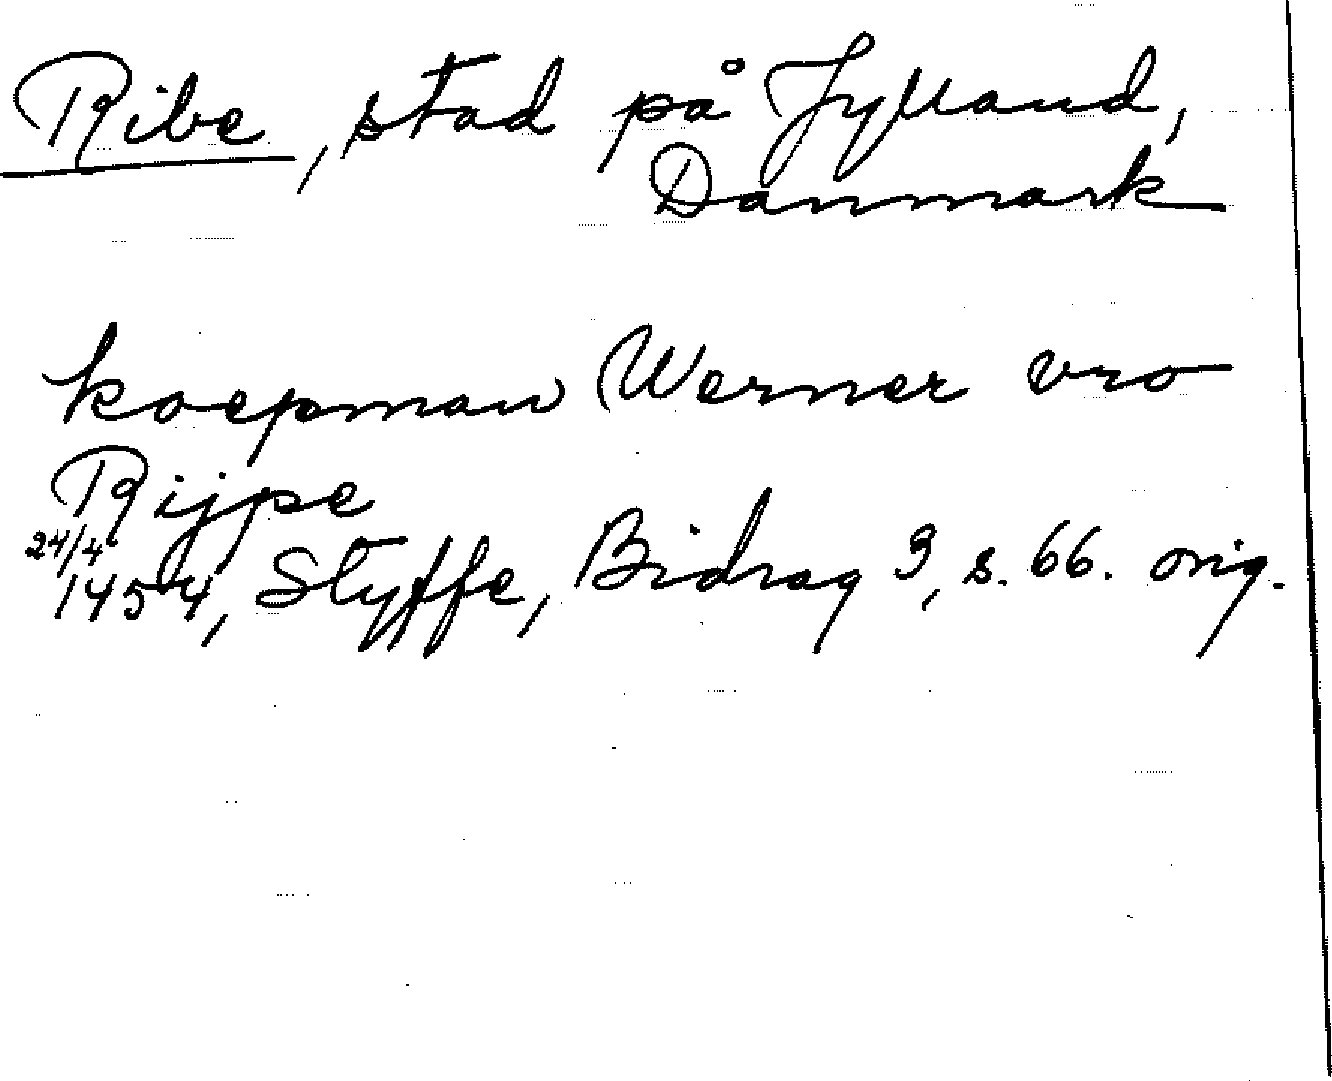 Ribe, stad på Jylland,
Danmark
koepman Werner vro
Rijpe
24/4
1454, Styffe, Bidrag 3, s. 66. orig.